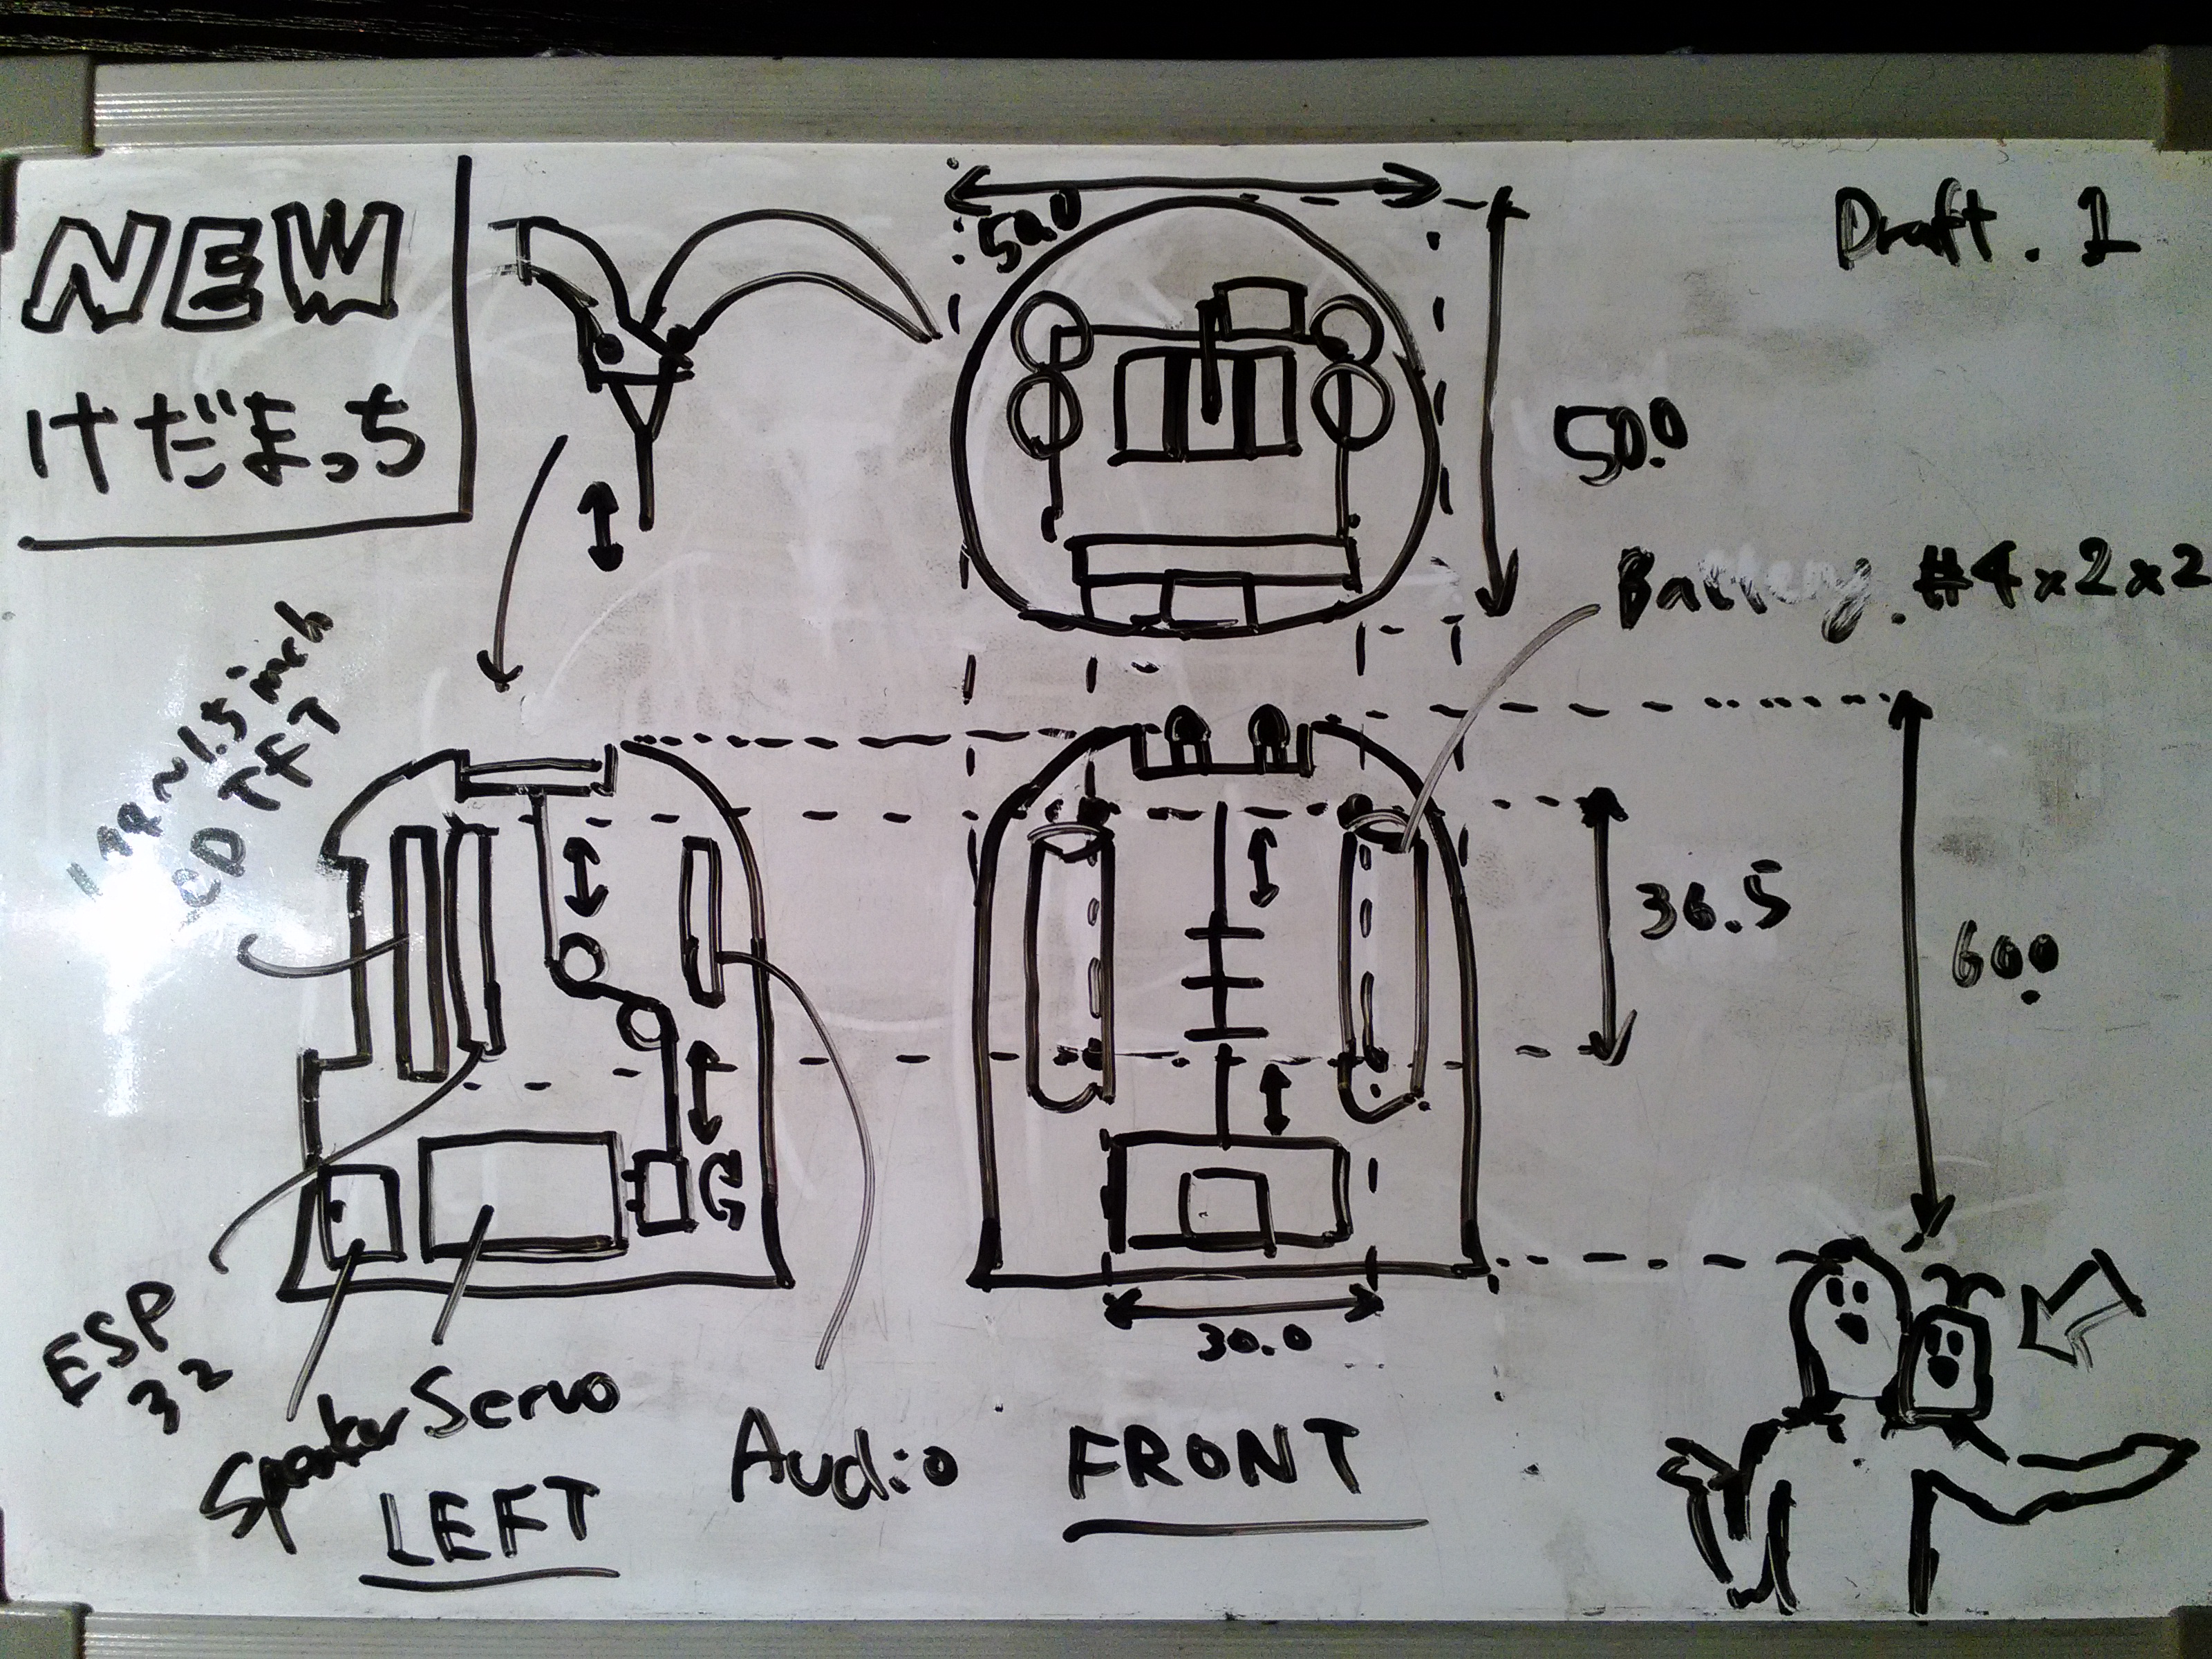 NEW
けだまっち
Draft. 1
50.0
50.0
Battery. #4x2x2
~1.5 inch
TFT
36.5
60.0
30.0
ESP
32
Speaker
Servo
Audio
LEFT
FRONT